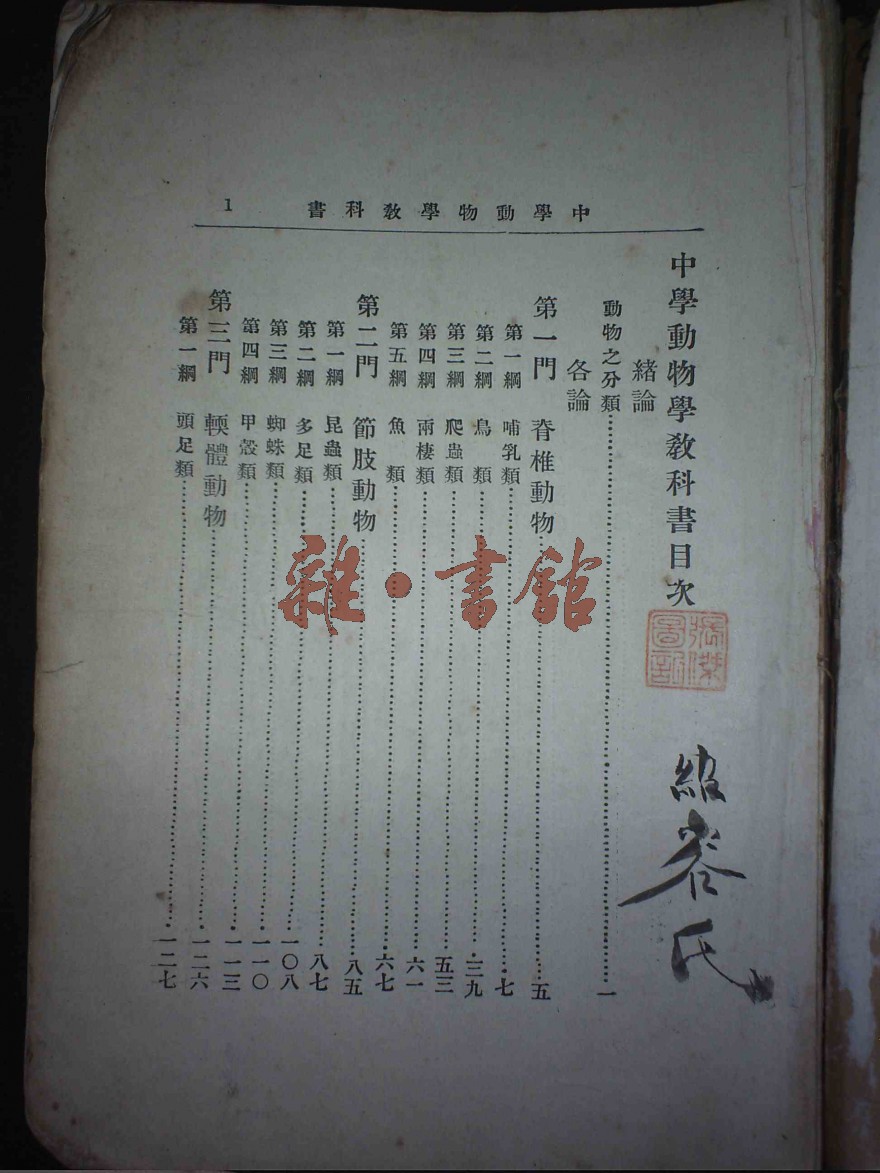 中學動物學教科書
1
中學動物學教科書目次
緒論
動物之分類……一
各論
第一門 脊椎動物……五
第一綱 哺乳類……七
第二綱 鳥類……三九
第三綱 爬蟲類……五三
第四綱 兩棲類……六一
第五綱 魚類……六七
第二門 節肢動物……八五
第一綱 昆蟲類……八七
第二綱 多足類……一〇八
第三綱 蜘蛛類……一一〇
第四綱 甲殼類……一一三
第三門 輭體動物……一二六
第一綱 頭足類……一二七
雜·書館